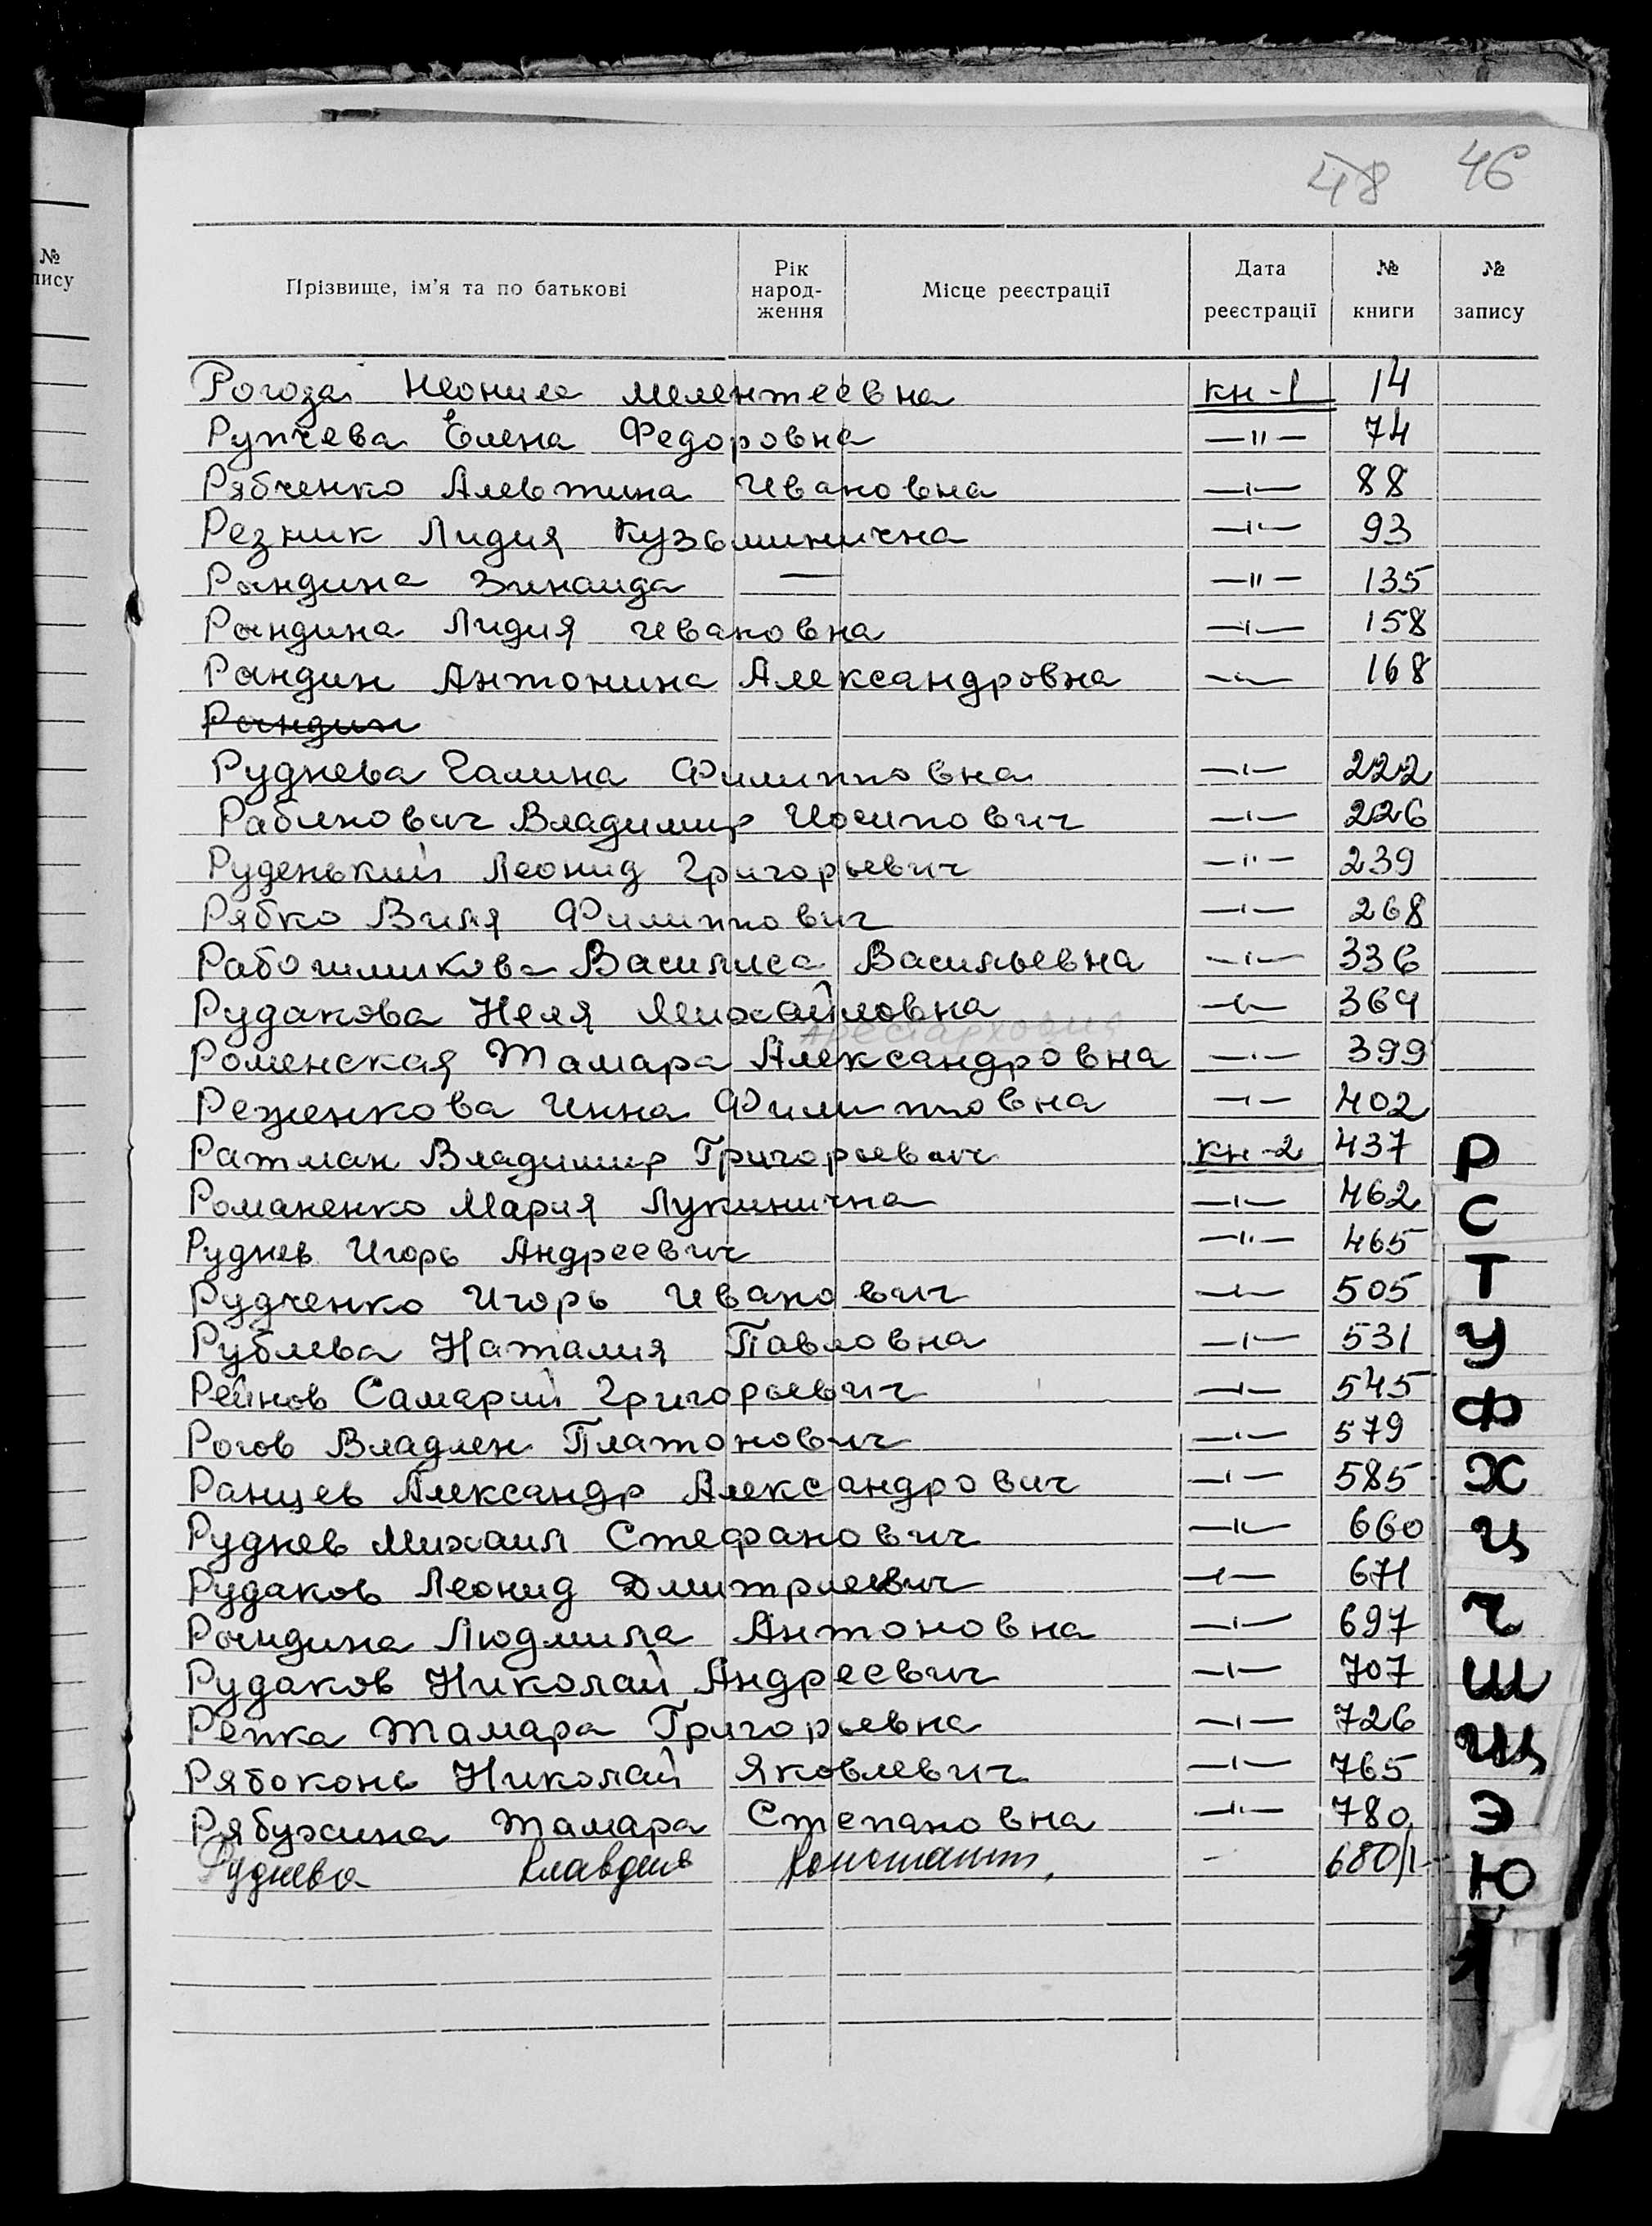 48 46
№
пису
Прізвище, ім'я та по батькові Рік народ-ження Місце реєстрації Дата реєстрації № книги № запису
Рогоза Неонила Мелентеевна кн-1 14
Рупчева Елена Федоровна —"— 74
Рябченко Алевтина Ивановна —"— 88
Резник Лидия Кузьминична —"— 93
Рандина Зинаида — —"— 135
Рандина Лидия Ивановна —"— 158
Рандин Антонина Александровна —"— 168
Рандин
Руднева Галина Филипповна —"— 222
Рабинович Владимир Иосипович —"— 226
Руденький Леонид Григорьевич —"— 239
Рябко Виля Филиппович —"— 268
Василиса Васильевна —"— 336
Рудакова Неля Михайловна —"— 369
Аристарховна
Роменская Тамара Александровна —"— 399
Реженкова Инна Филипповна —"— 402
Ратман Владимир Григорьевич кн-2 437
Романенко Мария Лукинична —"— 462
Руднев Игорь Андреевич —"— 465
Рудченко Игорь Иванович —"— 505
Рублева Наталия Павловна —"— 531
Рейнов Самарий Григорьевич —"— 545
Рогов Владлен Платонович —"— 579
Ранцев Александр Александрович —"— 585
Руднев Михаил Стефанович —"— 660
Рудаков Леонид Дмитриевич —"— 671
Рандина Людмила Антоновна —"— 697
Рудаков Николай Андреевич —"— 707
Репка Тамара Григорьевна —"— 726
Рябоконь Николай Яковлевич —"— 765
Рябухина Тамара Степановна —"— 780
Руднева Клавдия Констант. — 680/1
Р
С
Т
У
Ф
Х
Ц
Ч
Ш
Щ
Э
Ю